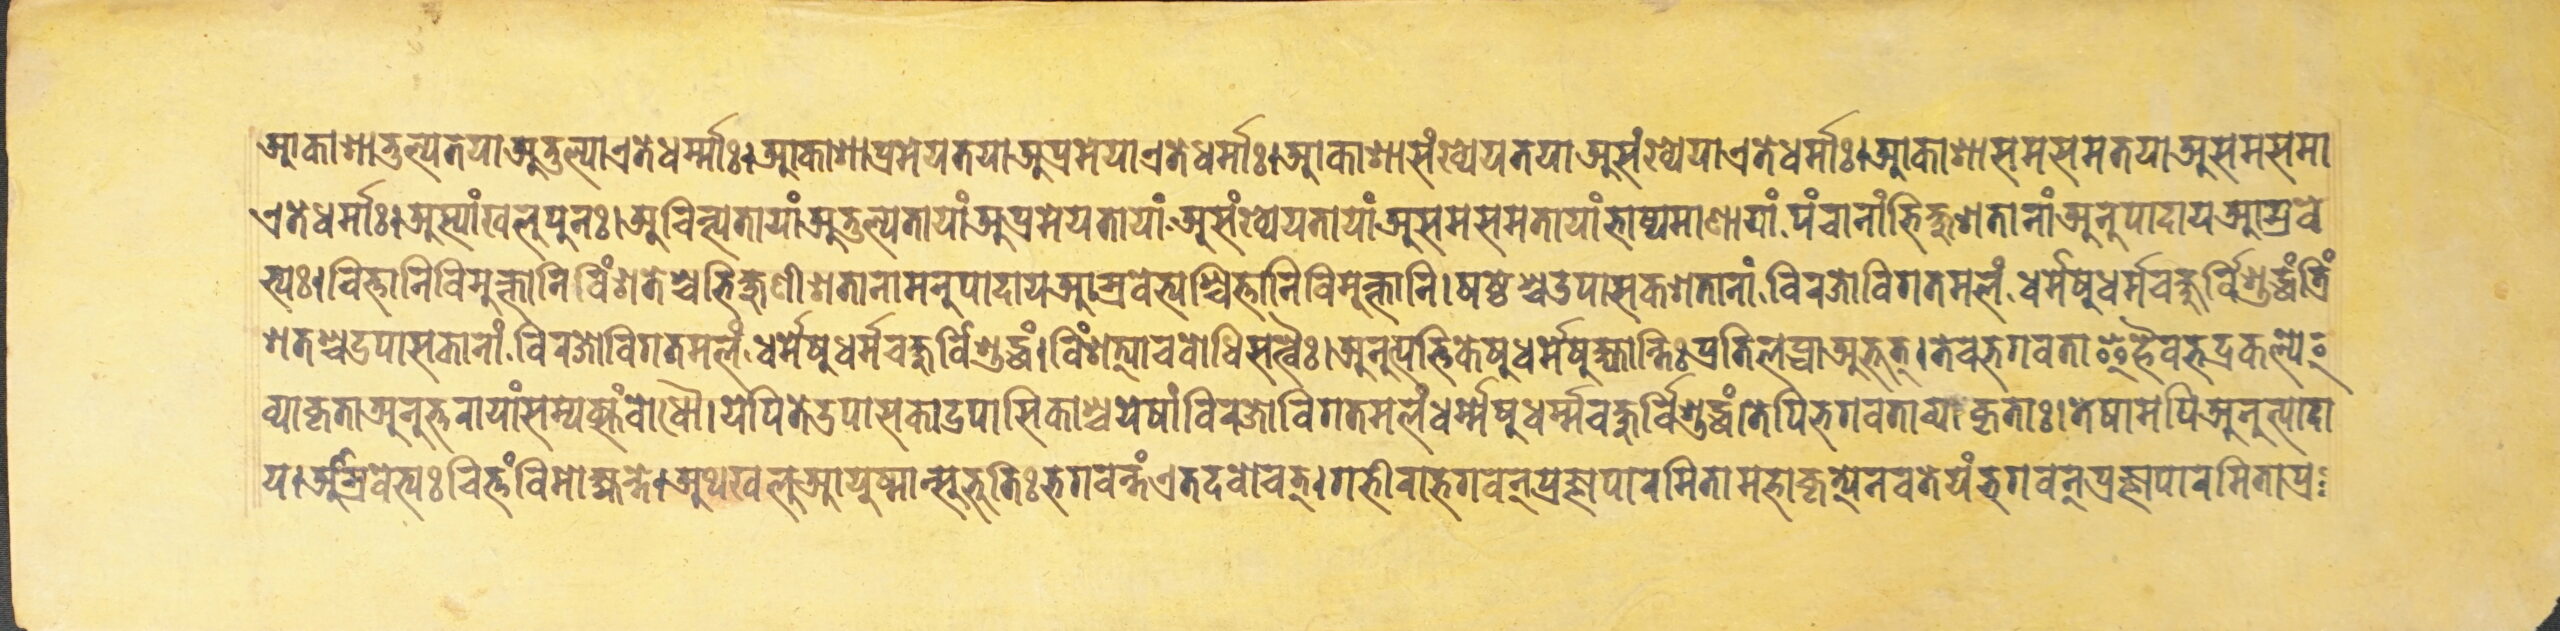 आकाशातुल्यतया अतुल्या एते धर्म्माः। आकाशाप्रमेयतया अप्रमेया एते धर्म्माः। आकाशासंख्येयतया असंख्येया एते धर्म्माः। आकाशासमसमतया असमसमा
एते धर्माः। अस्यां खलु पुनः। अचिन्त्यतायां अतुल्यतायां अप्रमेयतायां असंख्येयतायां असमसमतायां भाष्यमाणायां पंचानां भिक्षुशतानां अनुपादाय आस्रवे
भ्यः। चित्तानि विमुक्तानि विंशतेश्च भिक्षुणीशतानामनुपादाय आस्रवेभ्यश्चित्तानि विमुक्तानि। षष्ठेश्च उपासकशतानां विरजो विगतमलं धर्मेषु धर्मचक्षुर्विशुद्धं त्रिं
शतश्च उपासकानां विरजो विगतमलं धर्मेषु धर्मचक्षुर्विशुद्धं। विंशत्या च बोधिसत्त्वैः। अनुत्पत्तिकेषु धर्मेषु क्षान्तिः प्रतिलब्धा अभूत्। ते च भगवता इहैव भद्रकल्पे
व्याकृता अनुत्तरायां सम्यक्संबोधौ। येपि ते उपासका उपासिकाश्च येषां विरजो विगतमलं धर्म्मेषु धर्म्मचक्षुर्विशुद्धं। तेपि भगवता व्याकृताः। तेषामपि अनुत्पादा
य। आस्रवेभ्यः चित्तं विमोक्ष्यन्ते। अथ खलु आयुष्मान् सुभूतिः भगवन्तं एतदवोचत्। गम्भीरा भगवन् प्रज्ञापारमिता महाकृत्येन वतेयं भगवन् प्रज्ञापारमिता प्र